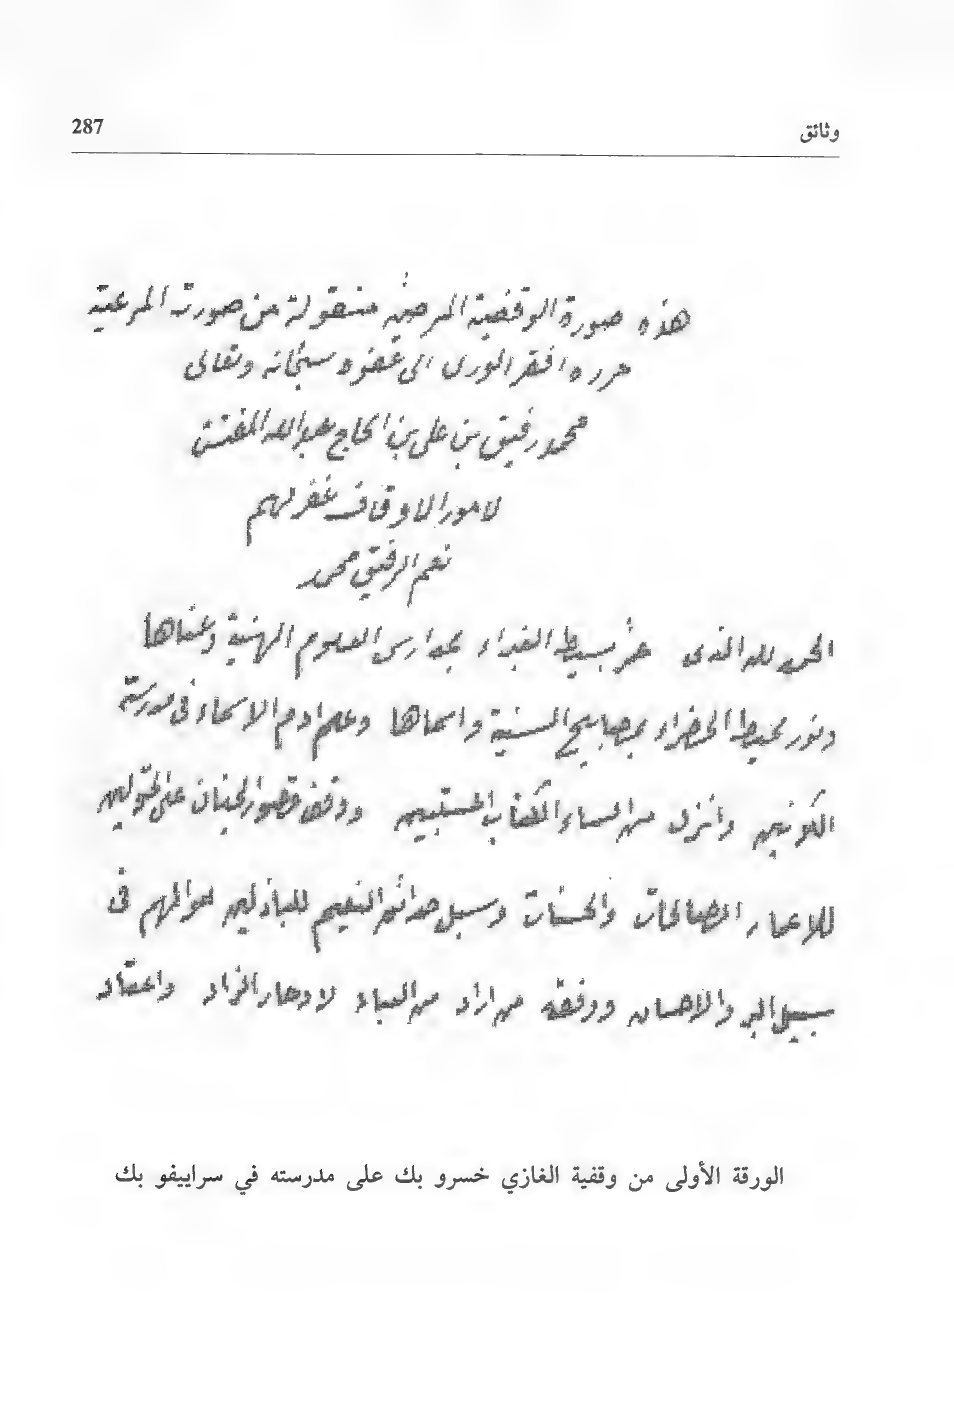 وثائق 287
هذه صورة الوقفية المرضية منقولة من صورته المرعية
حرره افقر الورى الى عفوه سبحانه وتعالى
محمد رفيق بن على بن الحاج عبدالله المفتش
لامور الاوقاف غفر لهم
نعم الرفيق محمد
الحمد لله الذى بسيط الغبراء بمدارس العلوم الهنية
ونور محيط الخضراء بمصابيح السنية واسماها وعلم ادم الاسماء فى مدرسة
الكونين وانزل من السماء الكتاب المستبين ووقف قصور الجنان على
للاعمار الصالحات والحسنات وسبل حدائق النعيم للباذلين اموالهم فى
سبيل البر والاحسان ووفق من اراد من العباد لادخار الزاد واعتاد
الورقة الأولى من وقفية الغازي خسرو بك على مدرسته في سراييفو بك